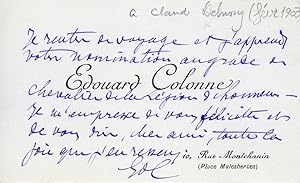 a Claud Debussy (févr 1903
Je rentre de voyage et j'apprends
votre nomination au grade de
Edouard Colonne
chevalier de la légion d'honneur –
Je m'empresse de vous féliciter et
de vous dire, cher ami, toute la
joie que j'en ressens
10, Rue Montchanin
(Place Malesherbes)
EdC